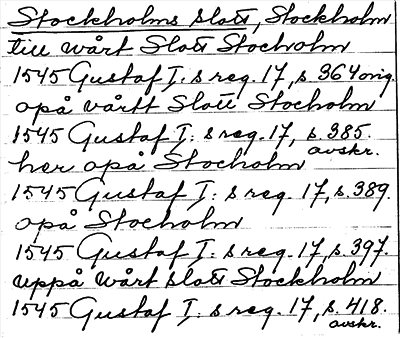 Stockholms slott, Stockholm
till wårt Slott Stocholm
1545 Gustaf I:s reg. 17, s. 364 orig.
opå vårtt Slott Stocholm
1545 Gustaf I:s reg. 17, s. 385.
avskr.
her opå Stocholm
1545 Gustaf I:s reg. 17, s. 389.
opå Stocholm
1545 Gustaf I:s reg. 17, s. 397.
uppå wårt slott Stockholm
1545 Gustaf I:s reg. 17, s. 418.
avskr.